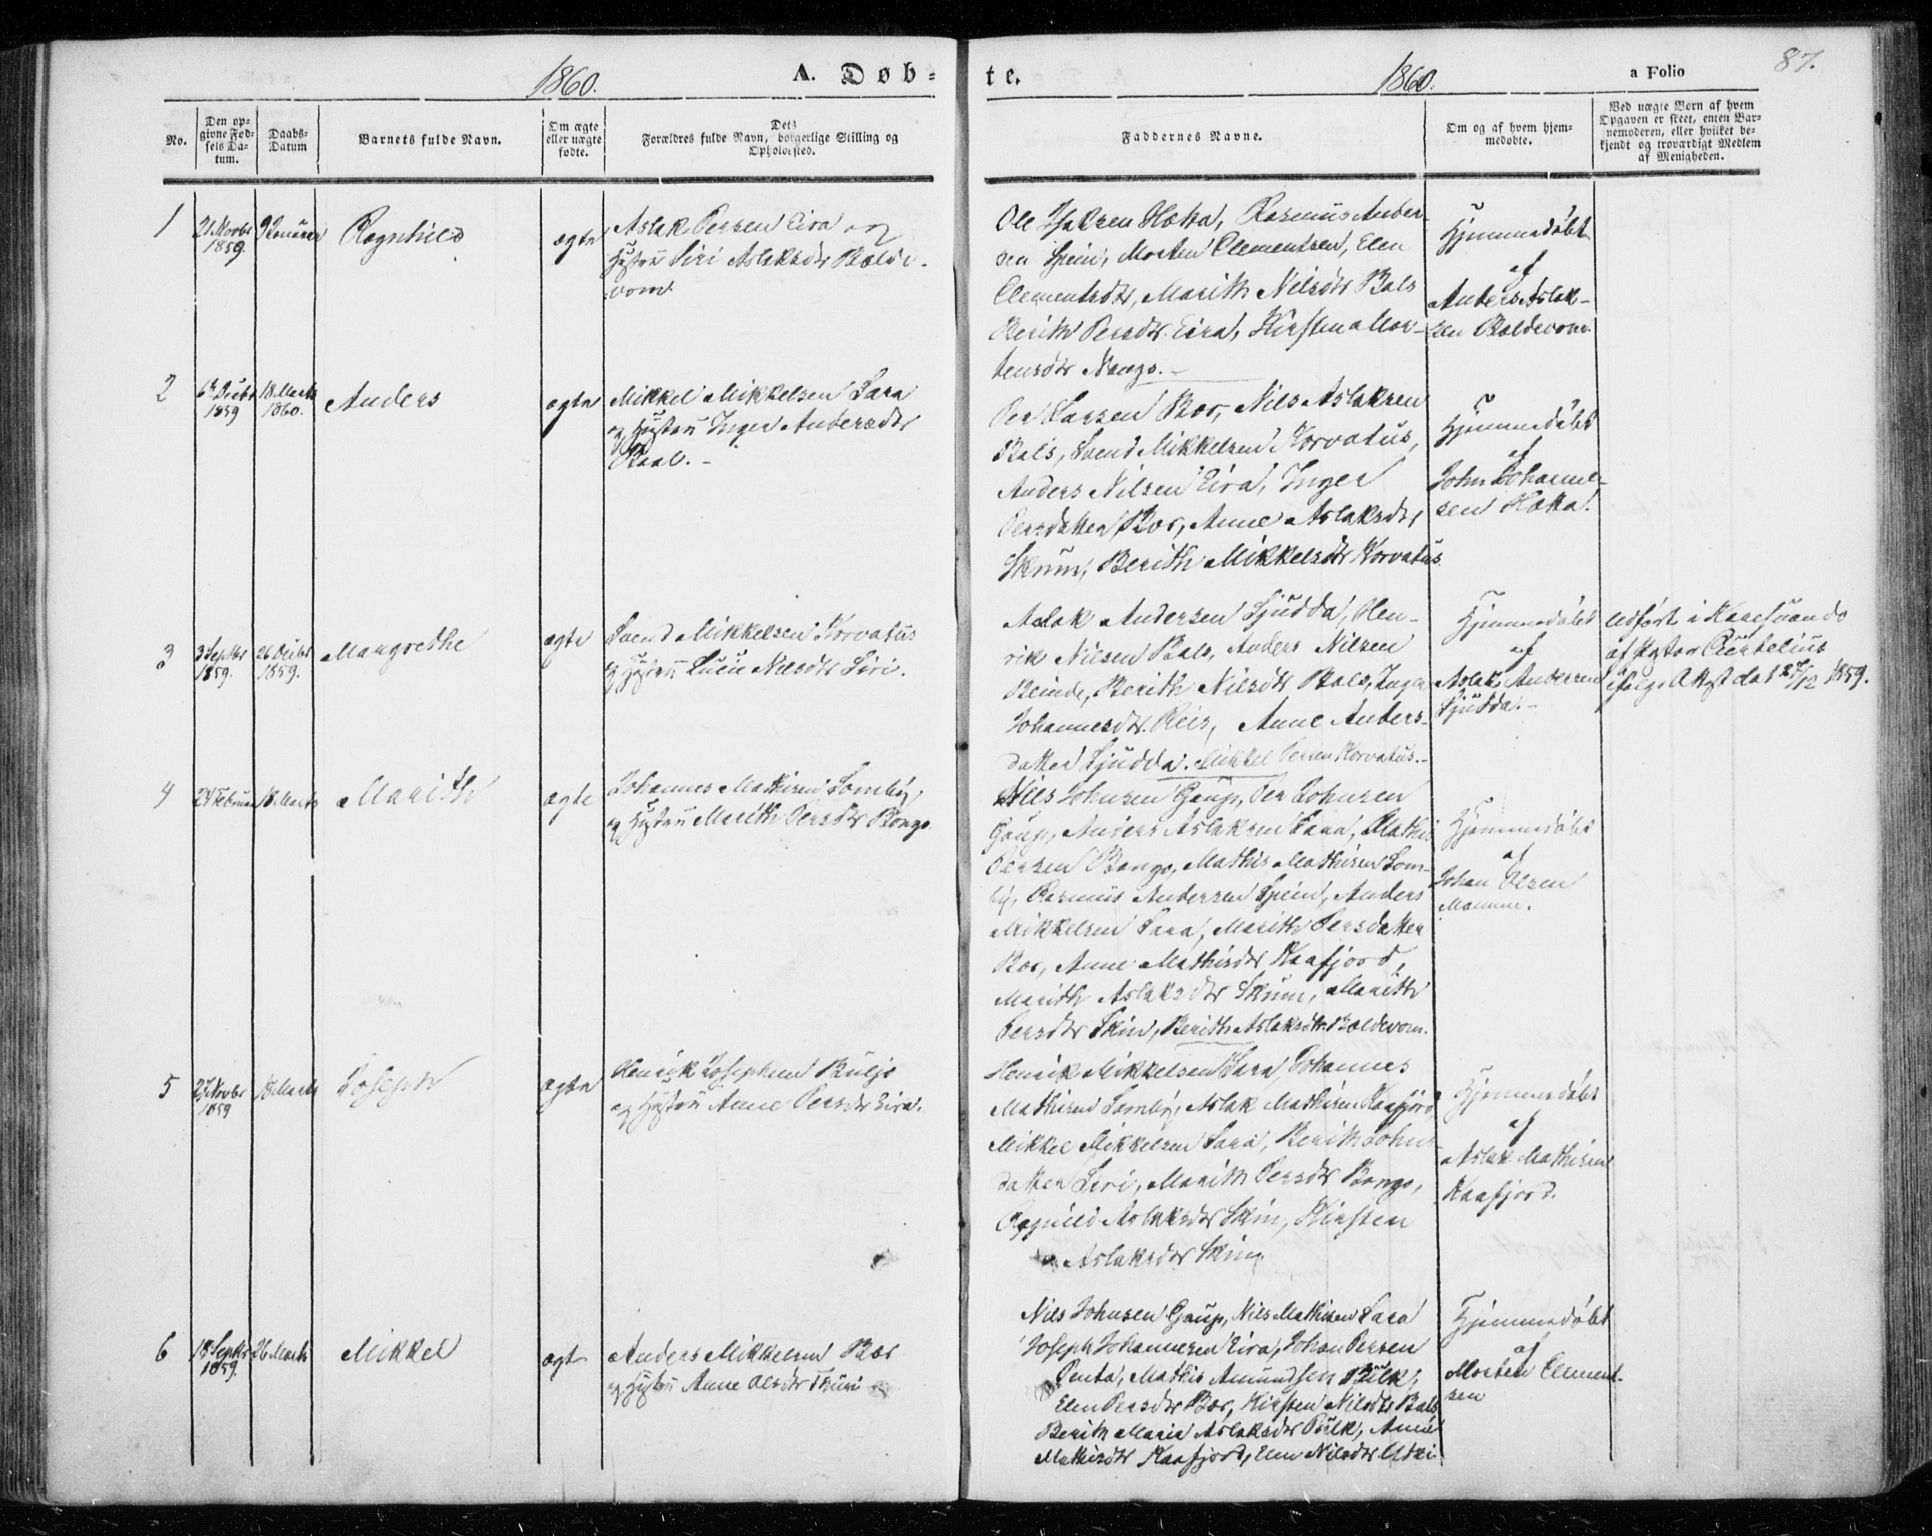 1860. A. Døb-
te. 1860. a Folio 87.
No.
Den op-
givne Fød-
sels Da-
tum.
Daabs-
Datum
Barnets fulde Navn.
Om ægte
eller uægte
fødte.
Dets
Forældres fulde Navn, borgerlige Stilling og
Opholdssted.
Faddernes Navne.
Om og af hvem hjem-
medøbte.
Ved uægte Børn af hvem
Opgaven er skeet, enten Bar-
nemoderen, eller hvilket be-
kjendt og troværdigt Medlem
af Menigheden.
1
21 Novbr
1859.
9 Januar
Ragnhild
ægte
Aslak Persen Eira og
Hustru Siri Aslaksdtr Balde-
vom.
Ole Isaksen Hætta, Rasmus Ander-
sen Spein, Morten Clementsen, Elen
Clementsdtr, Marith Nilsdtr Bals
Berith Persdtr Eira, Kirsten Mor-
tensdtr Nango.
Hjemmedøbt
af
Anders Aslak-
sen Baldevom.
2
6te Decbr
1859
18 Marts
1860.
Anders
ægte
Mikkel Mikkelsen Sara
og Hustru Inger Andersdtr
Per Larsen Bær, Nils Aslaksen
Bals, Svend Mikkelsen Korvatus,
Anders Nilsen Eira, Inger
Persdatter Bær, Anne Aslaksdtr
Skum, Berith Mikkelsdtr Korvatus.
Hjemmedøbt
af
John Johanne-
sen Hætta.
3
3 Septbr
1859.
26 Decbr
1859.
Margrethe
ægte
Svend Mikkelsen Korvatus
og Hustru Lucie Nilsdtr Siri.
Aslak Andersen Sjudda, Hen-
rik Nilsen Bals, Anders Nilsen
Beinde, Berith Nilsdtr Bals, Inger
Johannesdtr. Reis, Anne Anders-
datter Sjudda. Mikkel Persen Korvatus.
Hjemmedøbt
af
Aslak Andersen
Sjudda.
Udført i Karesuando
af Pastor
ifølge Attest dat 27/12 1859.
4
24 Februar
18 Marts
Marith
ægte
Johannes Mathisen Somby,
og Hustru Marith Persdtr Bongo
Nils Johnsen Gaup, Per Johnsen
Gaup, Anders Aslaksen Sara, Mathis
Persen Bongo, Mathis Mathisen Som-
by, Rasmus Andersen Spein, Anders
Mikkelsen Sara, Marith Persdatter
Bær, Anne Mathisdtr Kaafjord,
Marith Aslaksdtr Skum, Marith
Persdtr Skin, Berith Aslaksdtr. Baldevom.
Hjemmedøbt
af
Johan Olsen
5
27 Novbr
1859
18 Marts
Joseph
ægte
Henrik Josephsen Buljo
og Hustru Anne Persdtr Eira.
Henrik Mikkelsen Sara, Johannes
Mathisen Somby, Aslak Mathisen Kaafjord,
Mikkel Mikkelsen Sara, Berith Johns-
datter Siri, Marith Persdtr Bongo,
Ragnild Aslaksdtr Skin, Kirsten
Aslaksdtr
Hjemmedøbt
af
Aslak Mathisen
Kaafjord.
6
18 Septbr
1859.
26 Marts
Mikkel
ægte
Anders Mikkelsen Bær
og Hustru Anne Olsdtr
Nils Johnsen Gaup, Nils Mathisen Sara
Joseph Johannesen Eira, Johan Persen
Penta, Mathis Amundsen Bulk,
Elen Persdtr Bær, Kirsten Nilsdtr Bals
Berith Maria Aslaksdtr Bulk, Anne
Mathisdtr Kaafjord, Elen Nilsdtr Utsi.
Hjemmedøbt
af
Morten Clement-
sen